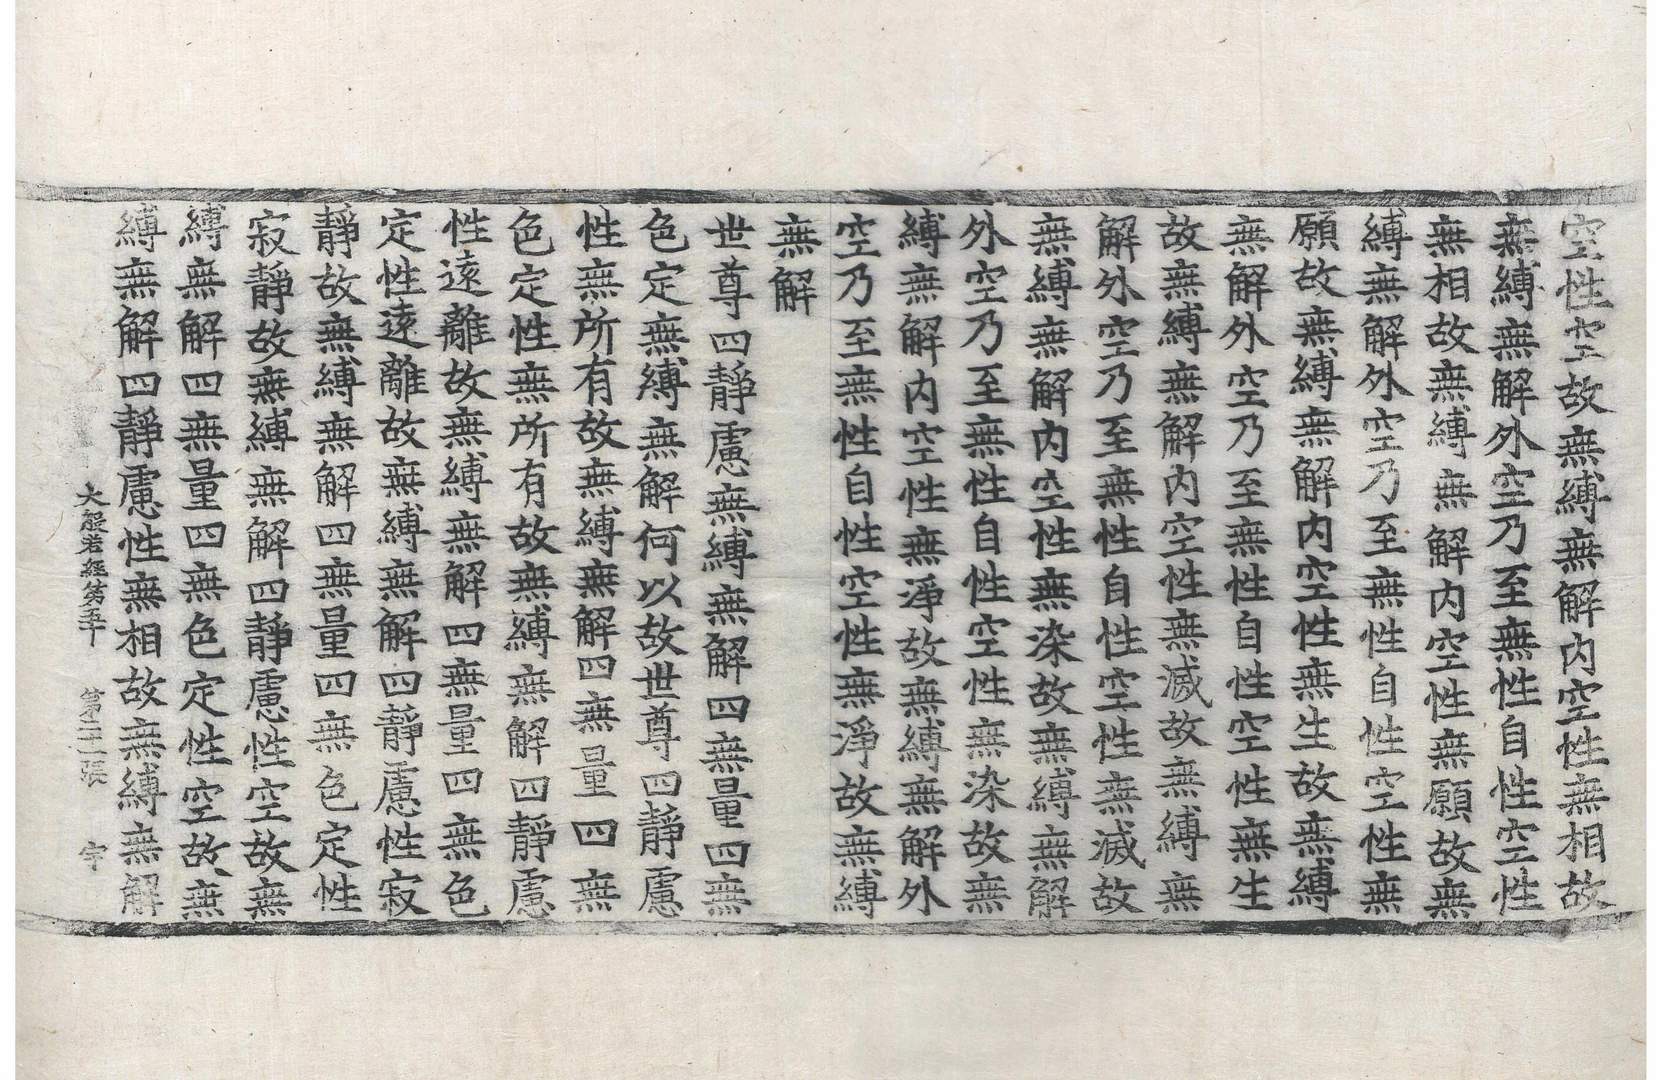 空性空故無縛無解内空性無相故
無縛無解外空乃至無性自性空性
無相故無縛無解内空性無願故無
縛無解外空乃至無性自性空性無
願故無縛無解内空性無生故無縛
無解外空乃至無性自性空性無生
故無縛無解内空性無滅故無縛無
解外空乃至無性自性空性無滅故
無縛無解内空性無染故無縛無解
外空乃至無性自性空性無染故無
縛無解内空性無淨故無縛無解外
空乃至無性自性空性無淨故無縛
無解
世尊四靜慮無縛無解四無量四無
色定無縛無解何以故世尊四靜慮
性無所有故無縛無解四無量四無
色定性無所有故無縛無解四靜慮
性遠離故無縛無解四無量四無色
定性遠離故無縛無解四靜慮性寂
靜故無縛無解四無量四無色定性
寂靜故無縛無解四靜慮性空故無
縛無解四無量四無色定性空故無
縛無解四靜慮性無相故無縛無解
大般若經第五十 第二十一張 宇